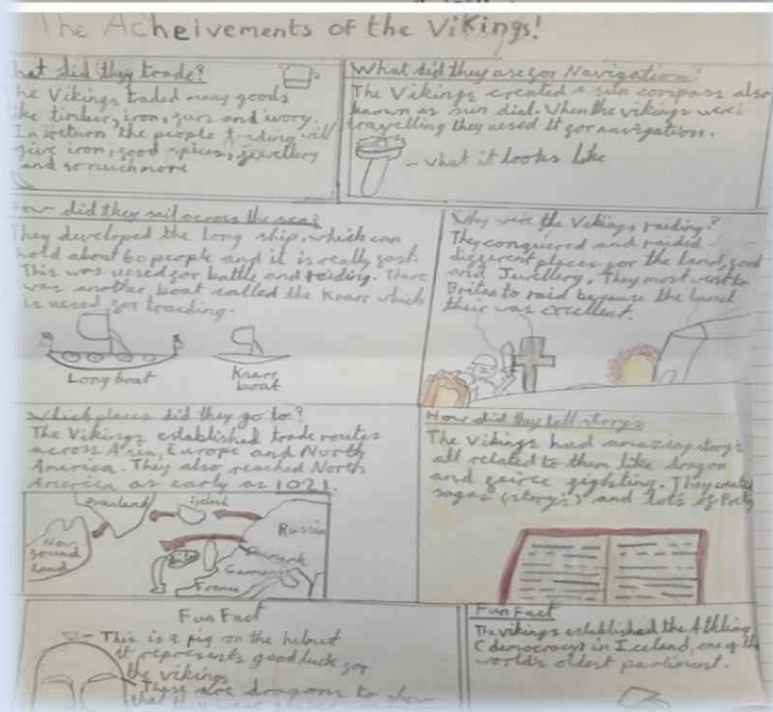 The Acheivements of the Vikings!
hat did they trade?
he Vikings traded many goods
ike timber, iron, furs and ivory.
In return the people trading will
give iron, food spices, jewellery
and so much more
What did they use for Navigation?
The Vikings created a sun compass also
known as sun dial. When the vikings were
travelling they uesed it for navigation.
- what it looks like
How did they sail across the sea?
They developed the long ship, which can
hold about 60 people and it is really fast.
This was uesed for battle and raiding. There
was another boat called the Knarr which
is uesed for traeding.
Long boat
Knarr
boat
Why were the Vikings raiding?
They conquered and raided
different places for the land, food
and Jewllery. They most went to
Britan to raid because the land
their was excellent.
Which places did they go to?
The Vikings established trade routes
across Asia, Europe and North
America. They also reached North
America as early as 1021.
Greenland
Iceland
Russia
New
found
land
Denmark
Germany
France
How did they tell story's
The Vikings had amazing story's
all related to them like dragon
and feirce fighting. They created
sagas (story's) and lots of
Fun Fact
- This is a pig on the helmet
it represents good luck for
the vikings
These are dragons to show
Fun Fact
The vikings established the
(democracy) in Iceland, one of the
worlds oldest parliment.